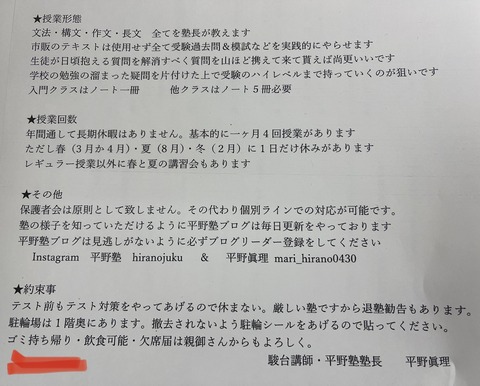 ★授業形態
文法・構文・作文・長文　全てを塾長が教えます
市販のテキストは使用せず全て受験過去問＆模試などを実践的にやらせます
生徒が日頃抱える質問を解消すべく質問を山ほど携えて来て貰えば尚更いいです
学校の勉強の溜まった疑問を片付けた上で受験のハイレベルまで持っていくのが狙いです
入門クラスはノート一冊　　他クラスはノート５冊必要
★授業回数
年間通して長期休暇はありません。基本的に一ヶ月４回授業があります
ただし春（３月か４月）・夏（８月）・冬（２月）に１日だけ休みがあります
レギュラー授業以外に春と夏の講習会もあります
★その他
保護者会は原則として致しません。その代わり個別ラインでの対応が可能です。
塾の様子を知っていただけるように平野塾ブログは毎日更新をやっております
平野塾ブログは見逃しがないように必ずブログリーダー登録をしてください
Instagram　平野塾　hiranojuku　＆　平野眞理 mari_hirano0430
★約束事
テスト前もテスト対策をやってあげるので休まない。厳しい塾ですから退塾勧告もあります。
駐輪場は１階奥にあります。撤去されないよう駐輪シールをあげるので貼ってください。
ゴミ持ち帰り・飲食可能・欠席届は親御さんからもよろしく。
駿台講師・平野塾塾長　　平野眞理